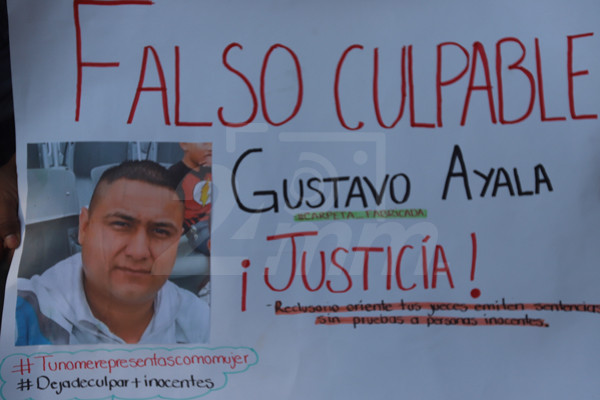 FALSO CULPABLE
GUSTAVO AYALA
#CARPETA FABRICADA
¡JUSTICÍA!
- Reclusorio oriente tus jueces emiten sentencias
sin pruebas a personas inocentes.
#Tunomerepresentascomomujer
#Dejadeculpar+inocentes